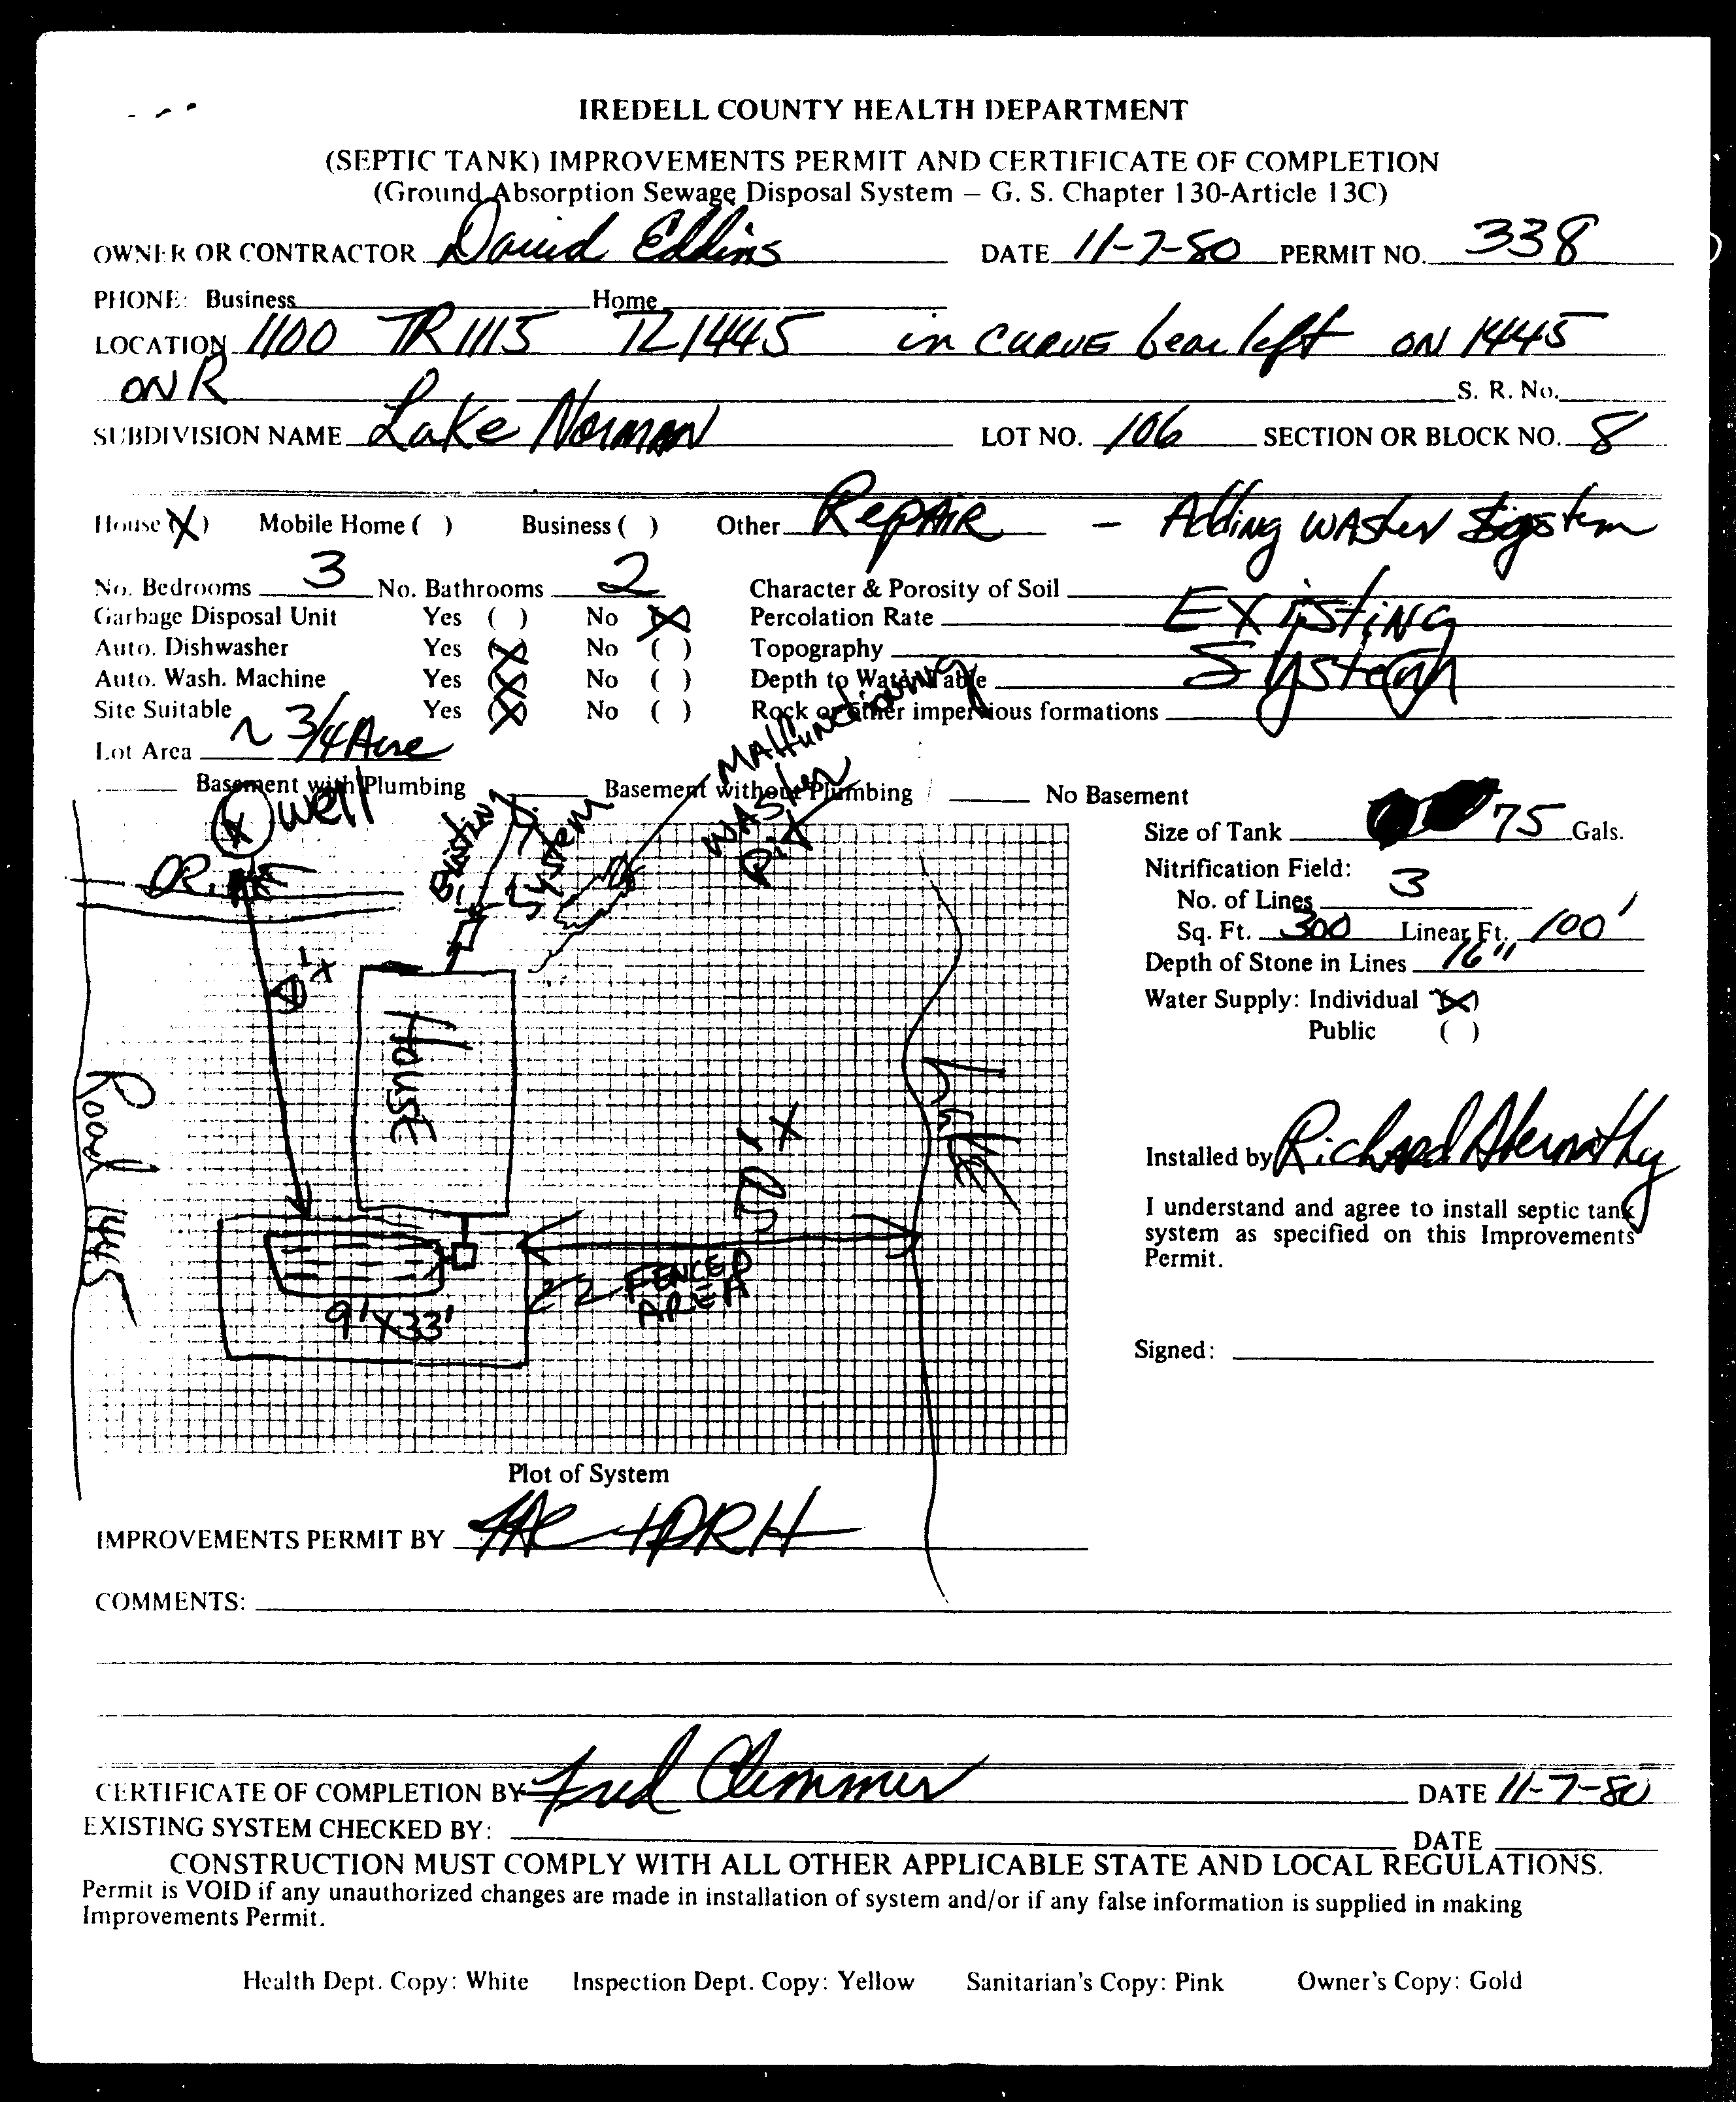 IREDELL COUNTY HEALTH DEPARTMENT
(SEPTIC TANK) IMPROVEMENTS PERMIT AND CERTIFICATE OF COMPLETION
(Ground Absorption Sewage Disposal System — G. S. Chapter 130-Article 13C)
OWNER OR CONTRACTOR David Eddins DATE 11-7-80 PERMIT NO. 338
PHONE: Business Home
LOCATION 1100 TR 1115 TL 1445 in CURVE bear left ON 1445
ON R S. R. No.
SUBDIVISION NAME Lake Norman LOT NO. 106 SECTION OR BLOCK NO. 8
House (X) Mobile Home ( ) Business ( ) Other Repair - Adding washer system
No. Bedrooms 3 No. Bathrooms 2 Character & Porosity of Soil
Garbage Disposal Unit Yes ( ) No (X) Percolation Rate Existing
Auto. Dishwasher Yes (X) No ( ) Topography
Auto. Wash. Machine Yes (X) No ( ) Depth to Water Table System
Site Suitable Yes (X) No ( ) Rock or other impervious formations
Lot Area ~ 3/4 Acre
Malfunctioning
Washer
Pit
Basement with Plumbing Basement without Plumbing No Basement
well
Existing
System
DR.
Size of Tank 75 Gals.
Nitrification Field:
No. of Lines 3
Sq. Ft. 300 Linear Ft. 100'
Depth of Stone in Lines 16"
Water Supply: Individual (X)
Public ( )
House
Lake
Road 1445
FENCED
AREA
9' x 33'
Installed by Richard Abernathy
I understand and agree to install septic tank
system as specified on this Improvements
Permit.
Signed:
Plot of System
IMPROVEMENTS PERMIT BY
COMMENTS:
CERTIFICATE OF COMPLETION BY Fred Clemmer DATE 11-7-80
EXISTING SYSTEM CHECKED BY: DATE
CONSTRUCTION MUST COMPLY WITH ALL OTHER APPLICABLE STATE AND LOCAL REGULATIONS.
Permit is VOID if any unauthorized changes are made in installation of system and/or if any false information is supplied in making
Improvements Permit.
Health Dept. Copy: White Inspection Dept. Copy: Yellow Sanitarian's Copy: Pink Owner's Copy: Gold